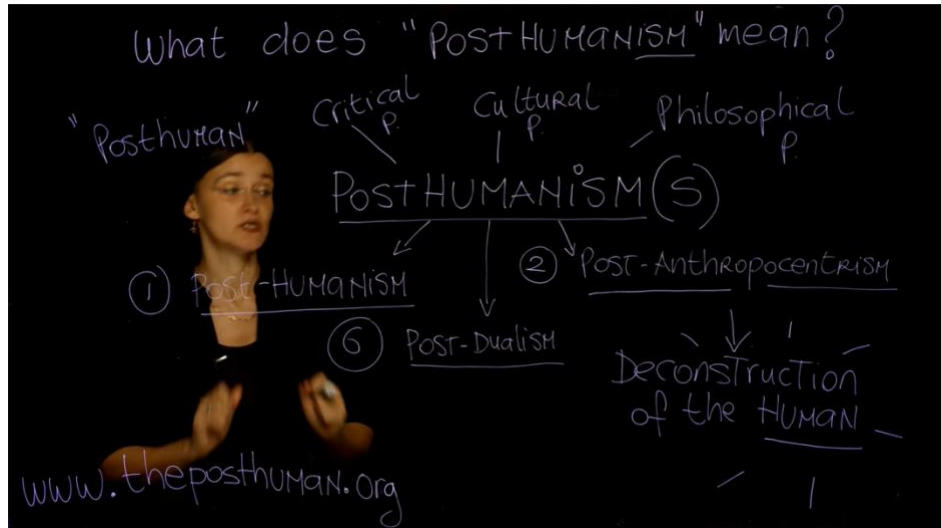 What does "POSTHUMANISM" mean?
"Posthuman"
Critical P.
Cultural P.
Philosophical P.
POSTHUMANISM(S)
① Post-Humanism
② Post-Anthropocentrism
⑥ Post-Dualism
Deconstruction
of the HUMAN
www.theposthuman.org